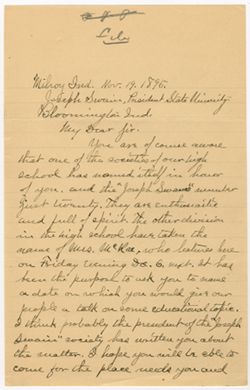 File
Milroy Ind. Nov. 19. 1895.
Joseph Swain, President State University
Bloomington Ind.
My Dear Sir.
You are of course aware
that one of the societies of our high
school has named itself in honor
of you. and the "Joseph Swains" number
just twenty. They are enthusiastic
and full of spirit. The other division
in the high school have taken the
name of Mrs. McRae, who lectures here
on Friday evening Dec. 6. next. It has
been the purpose to ask you to name
a date on which you would give our
people a talk on some educational topic.
I think probably the president of the "Joseph
Swain" society has written you about
the matter. I hope you will be able to
come for the place needs you and